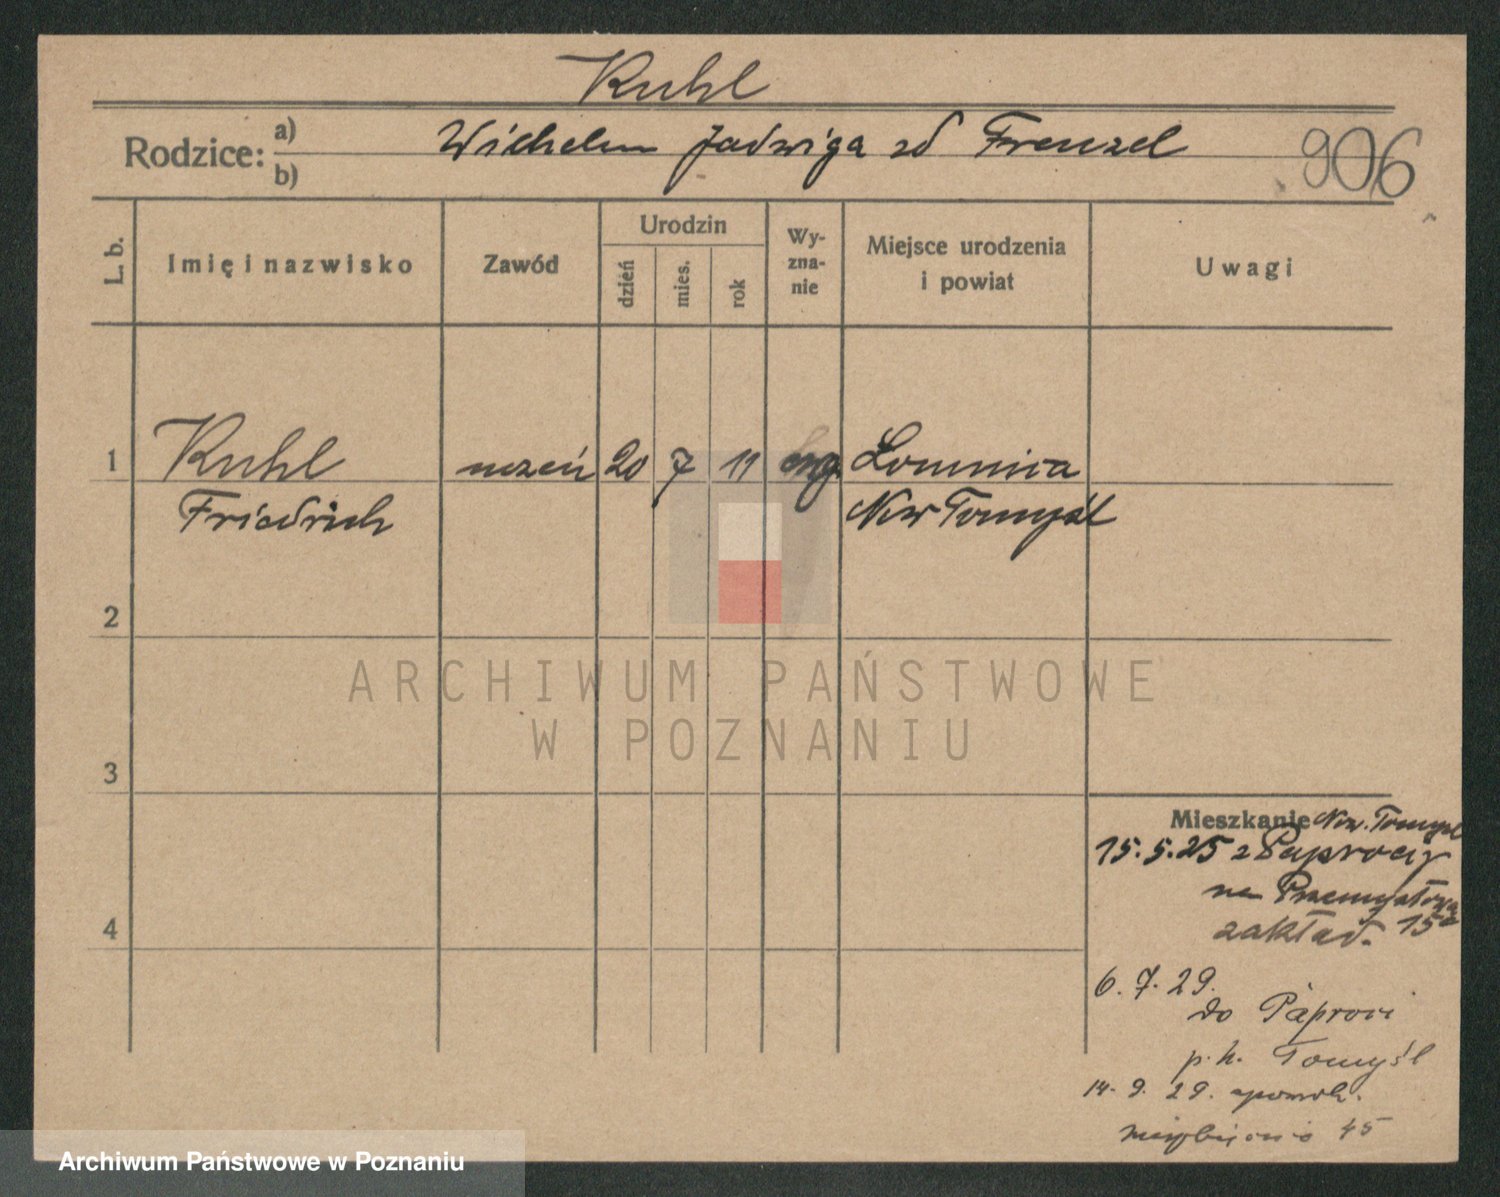 Kuhl
Rodzice: a) Wilhelm Jadwiga zd Frenzel
b)
906
L. b.
Imię i nazwisko
Zawód
Urodzin
dzień
mies.
rok
Wy-
zna-
nie
Miejsce urodzenia
i powiat
Uwagi
1 Kuhl uczeń 20 7 11 ewg. Lomnica
Friedrich Now Tomyśl
2
ARCHIWUM PAŃSTWOWE
W POZNANIU
3
Mieszkanie Now. Tomyśl
15.5.25 z Paproci
na Przemysłowa
zakład. 15a
4
6.7.29.
do Paproci
p. N. Tomyśl
14. 9. 29. z powrot.
45
Archiwum Państwowe w Poznaniu